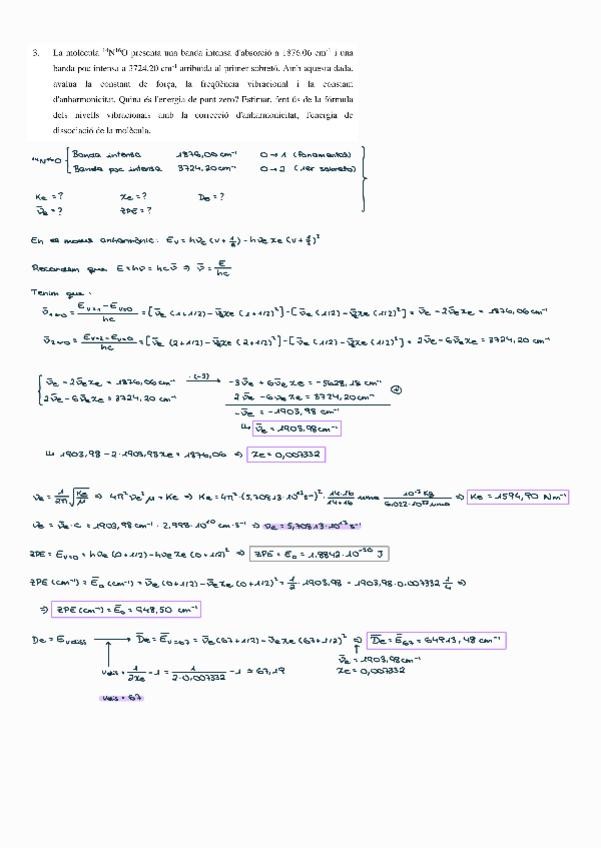 3. La molècula ¹⁴N¹⁶O presenta una banda intensa d'absorció a 1876.06 cm⁻¹ i una
banda poc intensa a 3724.20 cm⁻¹ atribuïda al primer sobretó. Amb aquesta dada,
avalua la constant de força, la freqüència vibracional i la constant
d'anharmonicitat. Quina és l'energia de punt zero? Estimar, fent ús de la fórmula
dels nivells vibracionals amb la correcció d'anharmonicitat, l'energia de
dissociació de la molècula.
¹⁴N¹⁶O Banda intensa 1876,06 cm⁻¹ 0→1 (fonamental)
Banda poc intensa 3724,20 cm⁻¹ 0→2 (1er sobretó)
Ke = ? xe = ? De = ?
ν̄e = ? ZPE = ?
En el model anharmònic: Eᵥ = hνe (v + 1/2) - hνe xe (v + 1/2)²
Recordem que E = hν = hcν̄ ⇒ ν̄ = E/hc
Tenim que:
ν̄₁←₀ = (Eᵥ₌₁ - Eᵥ₌₀)/hc = [ν̄e (1+1/2) - ν̄e xe (1+1/2)²] - [ν̄e (1/2) - ν̄e xe (1/2)²] = ν̄e - 2ν̄e xe = 1876,06 cm⁻¹
ν̄₂←₀ = (Eᵥ₌₂ - Eᵥ₌₀)/hc = [ν̄e (2+1/2) - ν̄e xe (2+1/2)²] - [ν̄e (1/2) - ν̄e xe (1/2)²] = 2ν̄e - 6ν̄e xe = 3724,20 cm⁻¹
ν̄e - 2ν̄e xe = 1876,06 cm⁻¹ ·(-3) → -3ν̄e + 6ν̄e xe = -5628,18 cm⁻¹
2ν̄e - 6ν̄e xe = 3724,20 cm⁻¹ 2ν̄e - 6ν̄e xe = 3724,20 cm⁻¹ (+)
-ν̄e = -1903,98 cm⁻¹
↳ ν̄e = 1903,98 cm⁻¹
↳ 1903,98 - 2·1903,98 xe = 1876,06 ⇒ xe = 0,007332
νe = 1/2π √(Ke/μ) ⇒ 4π² νe² μ = Ke ⇒ Ke = 4π² · (5,70813·10¹³ s⁻¹)² · (14·16)/(14+16) uma · (10⁻³ kg)/(6.022·10²³ uma) ⇒ Ke = 1594,90 Nm⁻¹
νe = ν̄e · c = 1903,98 cm⁻¹ · 2,998·10¹⁰ cm·s⁻¹ ⇒ νe = 5,70813·10¹³ s⁻¹
ZPE = Eᵥ₌₀ = hνe (0+1/2) - hνe xe (0+1/2)² ⇒ ZPE = E₀ = 1.8842·10⁻²⁰ J
ZPE (cm⁻¹) = Ē₀ (cm⁻¹) = ν̄e (0+1/2) - ν̄e xe (0+1/2)² = 1/2 · 1903,98 - 1903,98 · 0,007332 1/4 ⇒
⇒ ZPE (cm⁻¹) = Ē₀ = 948,50 cm⁻¹
De = Eᵥdiss → D̄e = Ēᵥ₌₆₇ = ν̄e (67+1/2) - ν̄e xe (67+1/2)² ⇒ D̄e = Ē₆₇ = 64913,48 cm⁻¹
vdis = 1/2xe - 1 = 1/(2·0,007332) - 1 ≈ 67,19 ν̄e = 1903,98 cm⁻¹
xe = 0,007332
vdis = 67